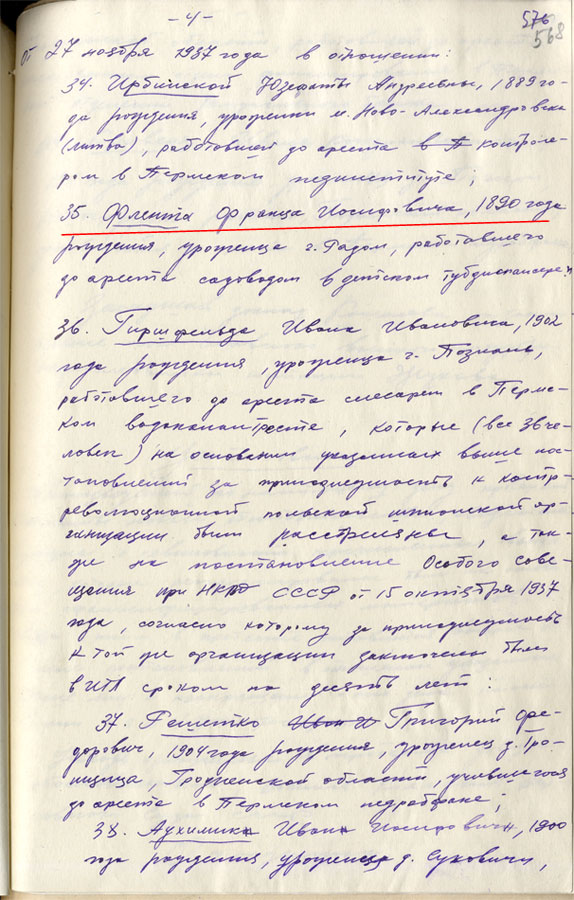 -4-
576
568
от 27 ноября 1937 года в отношении:
34. Ирбинской Юзефаты Андреевны, 1889 го-
да рождения, уроженки м. Ново-Александровска
(литва), работавшей до ареста в П контроле-
ром в Пермском пединституте;
35. Флента Франца Иосифовича, 1890 года
рождения, уроженца г. Радом, работавшего
до ареста садоводом в детском тубдиспансере;
36. Гиршфельда Ивана Ивановича, 1902
года рождения, уроженца г. Познань,
работавшего до ареста слесарем в Перм-
ком водоканалтресте, которые (все 36 че-
ловек) на основании указанных выше пос-
тановлений за принадлежность к контр-
революционной польской шпионской ор-
ганизации были расстреляны, а так-
же на постановление Особого сове-
щания при НКВД СССР от 15 октября 1937
года, согласно которому за принадлежность
к той же организации заключены были
в ИТЛ сроком на десять лет:
37. Решетко Иван И Григорий Фе-
дорович, 1904 года рождения, уроженец д.
Гродненской области, учившегося
до ареста в Пермском педрабфаке;
38. Аухимик Иван Иосифович, 1900
года рождения, уроженец д. Суковичи,